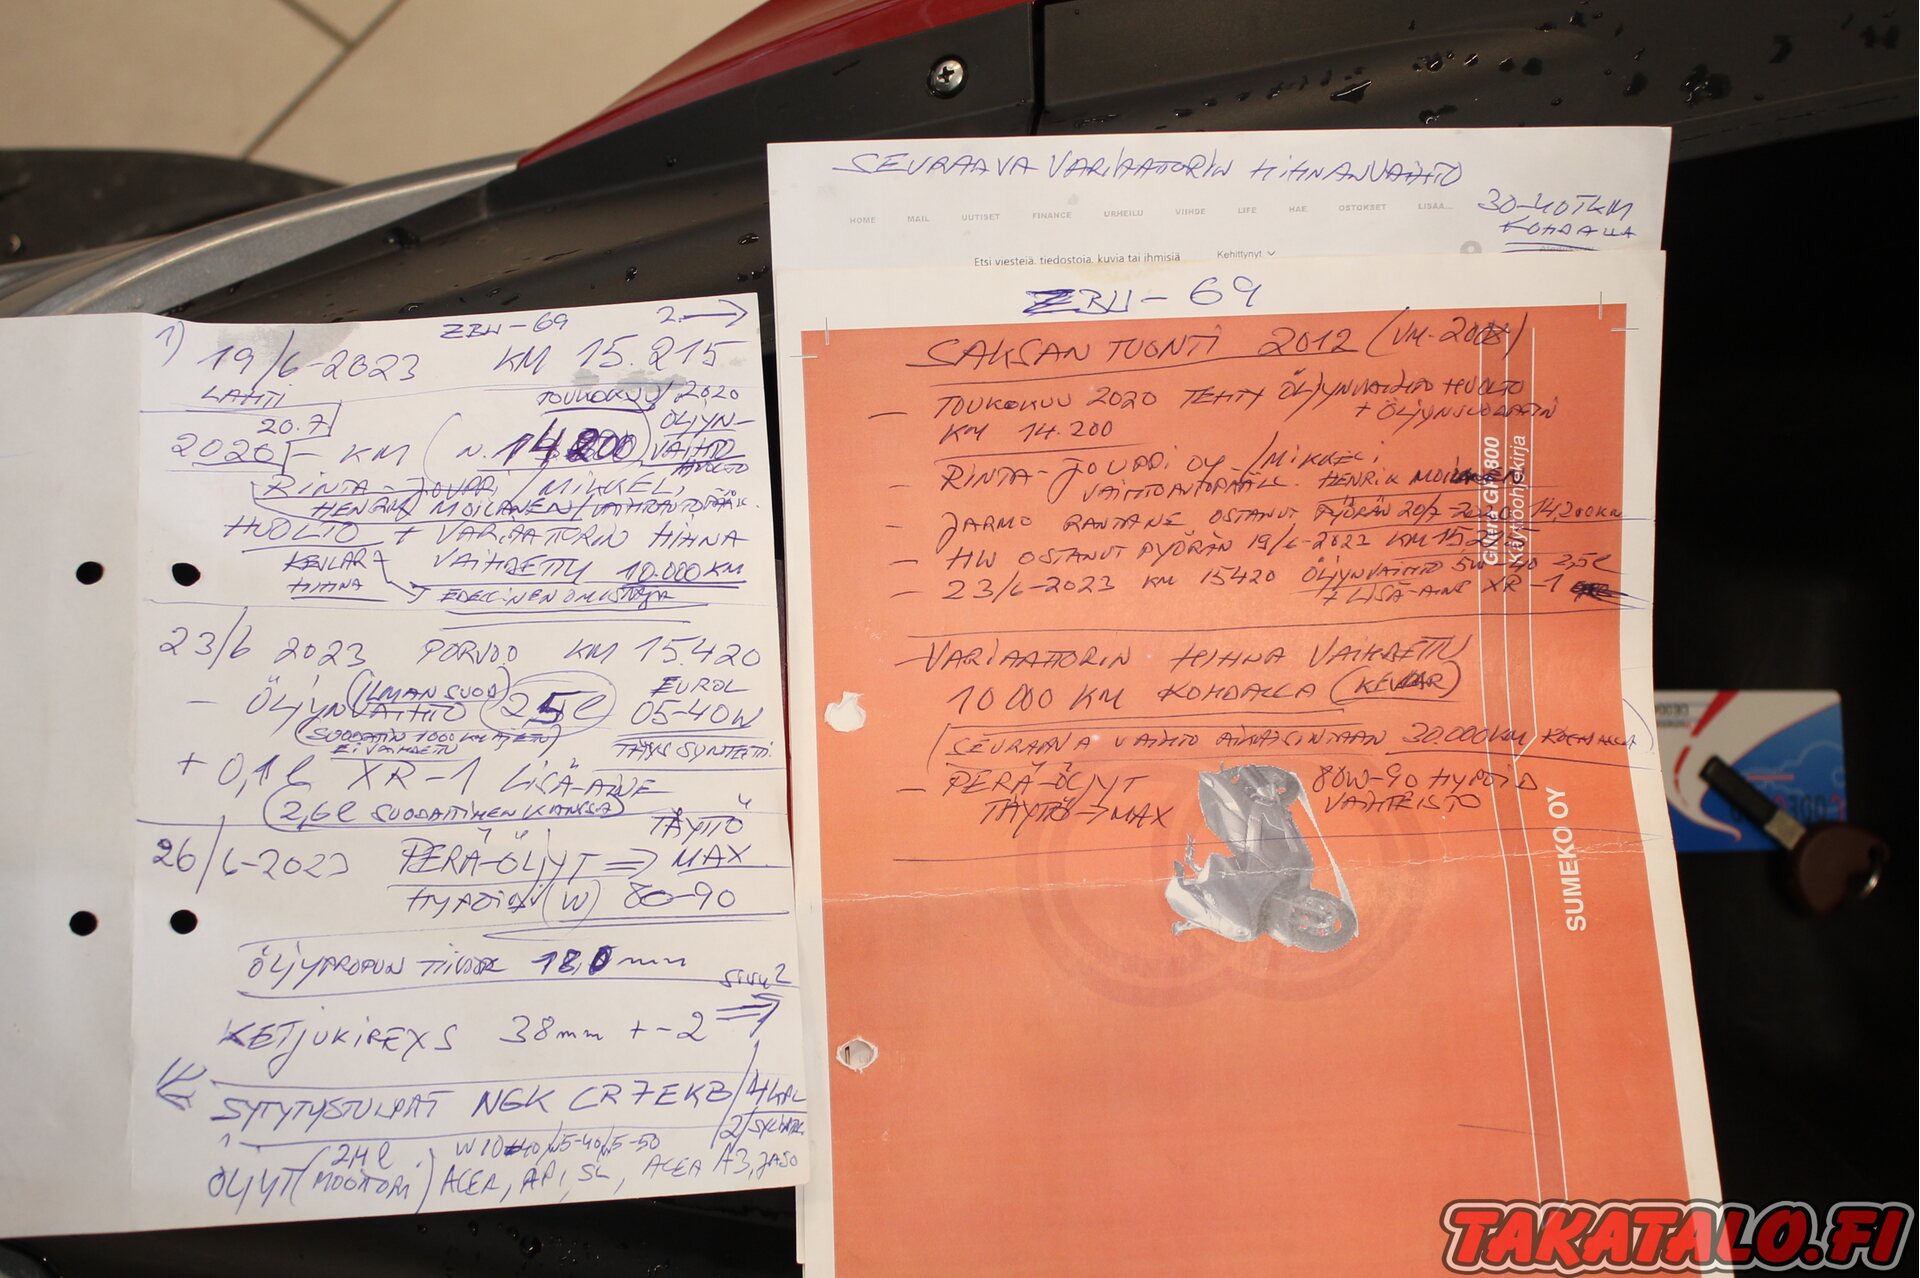 SEURAAVA VARIAATTORIN HIHNANVAIHTO
30-40 TKM
KOHDALLA
HOME MAIL UUTISET FINANCE URHEILU VIIHDE LIFE HAE OSTOKSET LISÄÄ...
Etsi viestejä, tiedostoja, kuvia tai ihmisiä Kehittynyt
1) ZBU-69 2 →
19/6-2023 KM 15.215
LAHTI
TOUKOKUU/2020
20.7
ÖLJYN-
VAIHTO
2020 - KM (N. 14200)
RINTA-JOUPPI/MIKKELI
HENRIK MOILANEN/
HUOLTO + VARIAATTORIN HIHNA
KEVLAR VAIHDETTU 10.000 KM
HIHNA
EDELLINEN OMISTAJA
23/6 2023 PORVOO KM 15.420
- ÖLJYNVAIHTO (ILMAN SUOD) 2,5l EUROL
05-40W
(SUODATIN 1000 KM AJETTU
EI VAIHDETTU
TÄYSSYNTEETTI
+ 0,1l XR-1 LISÄ-AINE
(2,6l SUODATTIMEN KANSSA)
26/6-2023 PERÄ-ÖLJYT ⇒ TÄYTTÖ
MAX
(W) 80-90
ÖLJYPROPUN TIIVISTE 18,0mm
SIVU 2
KETJUKIREXS 38mm +-2
SYTYTYSTULPAT NGK CR7EKB/4KPL
2/SYLINTERI
ÖLJYT (MOOTTORI) W10-40/W5-40/W5-50
ACEA, API, SL, ACEA A3, JASO
ZBU-69
SAKSAN TUONTI 2012
- TOUKOKUU 2020 TEHTY ÖLJYNVAIHTO HUOLTO
+ ÖLJYNSUODATIN
KM 14.200
- RINTA-JOUPPI OY/MIKKELI
VAIHTOAUTOPÄÄLL. HENRIK MOILANEN
- JARMO RANTANE OSTANUT PYÖRÄN 20/7-2020 14,200KM
- HW OSTANUT PYÖRÄN 19/6-2023 KM 15,215
- 23/6-2023 KM 15420 ÖLJYNVAIHTO 5W-40 2,5l
+ LISÄ-AINE XR-1
- VARIAATTORIN HIHNA VAIHDETTU
10 000 KM KOHDALLA (KEVLAR)
(SEURAAVA VAIHTO AIKAISINTAAN 30.000KM KOHDALLA)
- PERÄ-ÖLJYT 80W-90 HYPOID
TÄYTTÖ → MAX VAIHTEISTO
Gilera GP 800
Käyttöohjekirja
SUMEKO OY
TAKATALO.FI